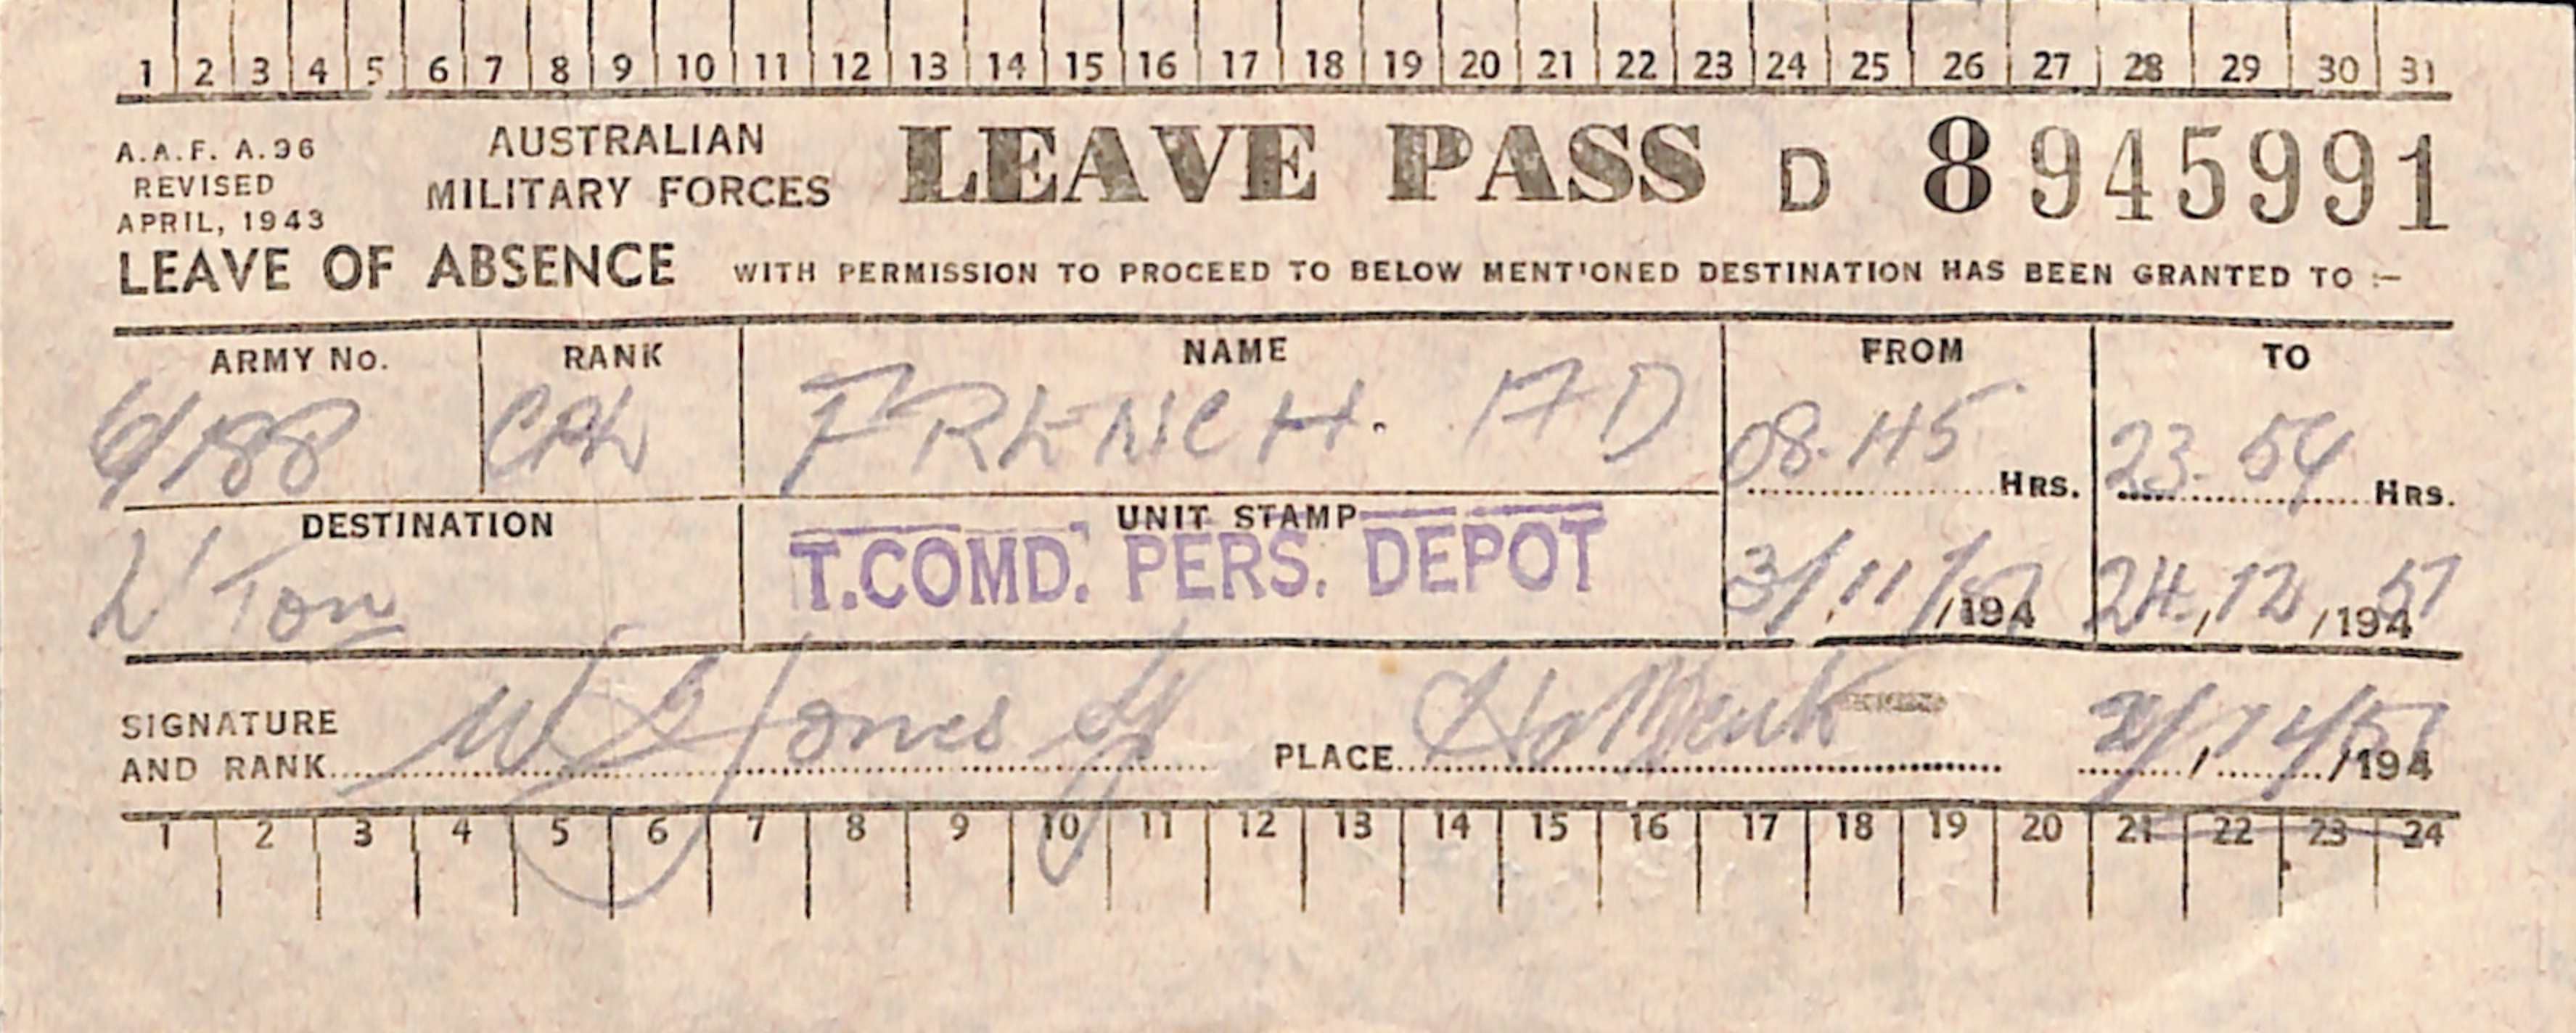 1 2 3 4 5 6 7 8 9 10 11 12 13 14 15 16 17 18 19 20 21 22 23 24 25 26 27 28 29 30 31
A.A.F. A.96
REVISED
APRIL, 1943
AUSTRALIAN
MILITARY FORCES
LEAVE PASS D 8945991
LEAVE OF ABSENCE WITH PERMISSION TO PROCEED TO BELOW MENTIONED DESTINATION HAS BEEN GRANTED TO :—
ARMY No. RANK NAME FROM TO
6/188 CPL FRENCH. AD 08.45 Hrs. 23.59 Hrs.
DESTINATION UNIT STAMP
L'Ton T.COMD. PERS. DEPOT 3/11/51 /194 24/12/51 /194
SIGNATURE
AND RANK Jones PLACE /194
1 2 3 4 5 6 7 8 9 10 11 12 13 14 15 16 17 18 19 20 21 22 23 24